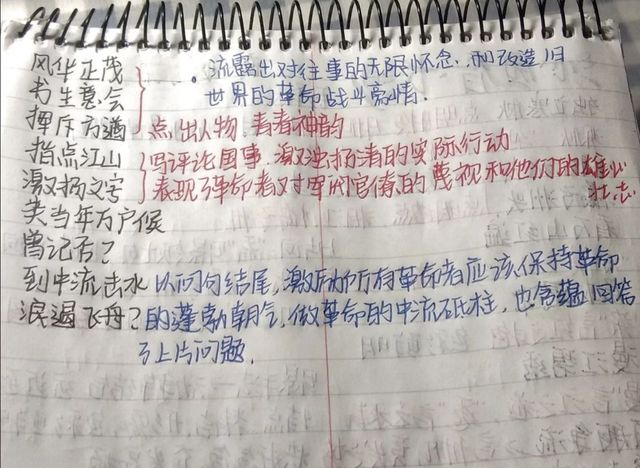 风华正茂 流露出对往事的无限怀念,和改造旧
书生意会 世界的革命战斗豪情.
挥斥方遒 点出人物,青春神韵
指点江山 写评论国事、激浊扬清的实际行动
激扬文字 表现了革命者对军阀官僚的蔑视和他们的雄心
壮志
关当年万户候
曾记否?
到中流击水 以问句结尾,激励所有革命者应该保持革命
浪遏飞舟? 的蓬勃朝气,做革命的中流砥柱,也含蕴回答
了上片问题.